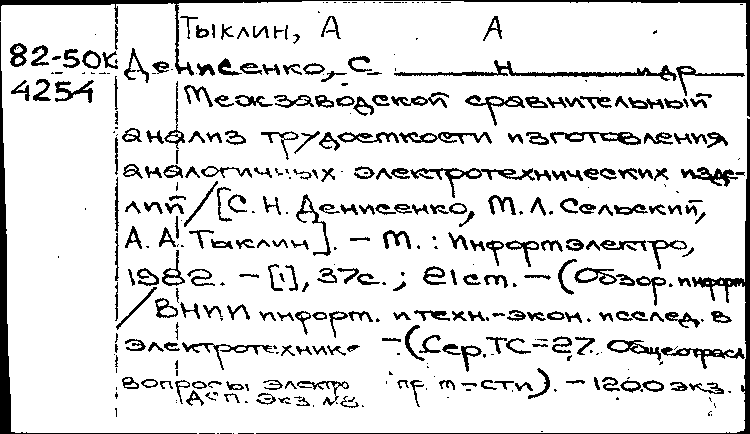 Тыклин, А А
82-50К Денисенко, С Н и др
4254 Межзаводской сравнительный
анализ трудоемкости изготовления
аналогичных электротехнических изде-
лий / [С. Н. Денисенко, М. Л. Сельский,
А. А. Тыклин]. — М. : Информэлектро,
1982. — [1], 37с. ; 21см. — (Обзор. информ
/ ВНИИ информ. и техн.-экон. исслед. в
электротехнике — (Сер. ТС=27. Общеотрасл
вопросы электро пр м-сти). — 1200 экз.
Деп. экз. №8.